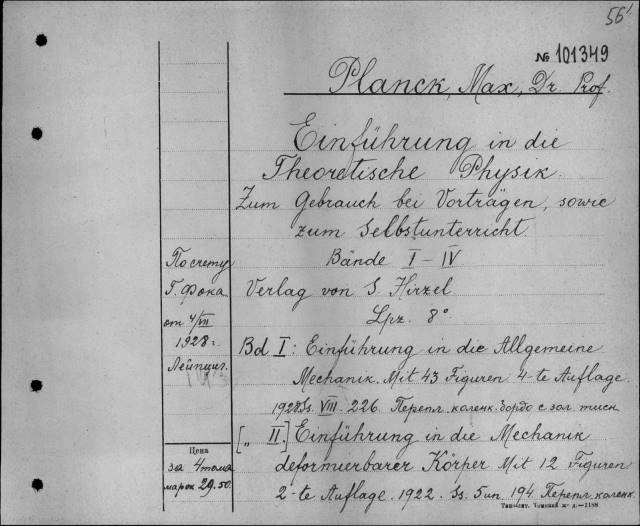 56
№ 101349
Planck, Max, Dr. Prof.
Einführung in die
Theoretische Physik.
Zum Gebrauch bei Vorträgen, sowie
zum Selbstunterricht.
Bände I – IV
Verlag von S. Hirzel.
Lpz. 8°
Bd I: Einführung in die Allgemeine
Mechanik. Mit 43 Figuren 4-te Auflage.
1928. Ss. VIII. 226. Перепл. коленк. бордо с зол. тисн.
[„ II.] Einführung in die Mechanik
deformierbarer Körper Mit 12 Figuren
2-te Auflage. 1922. Ss. 5 un. 194. Перепл. коленк.
По счету
Г. Фока
от 4/VII
1928 г.
Лейпциг.
Цена
за 4 тома
марок 29.50
Типо-лит. Томской ж. д.—1188